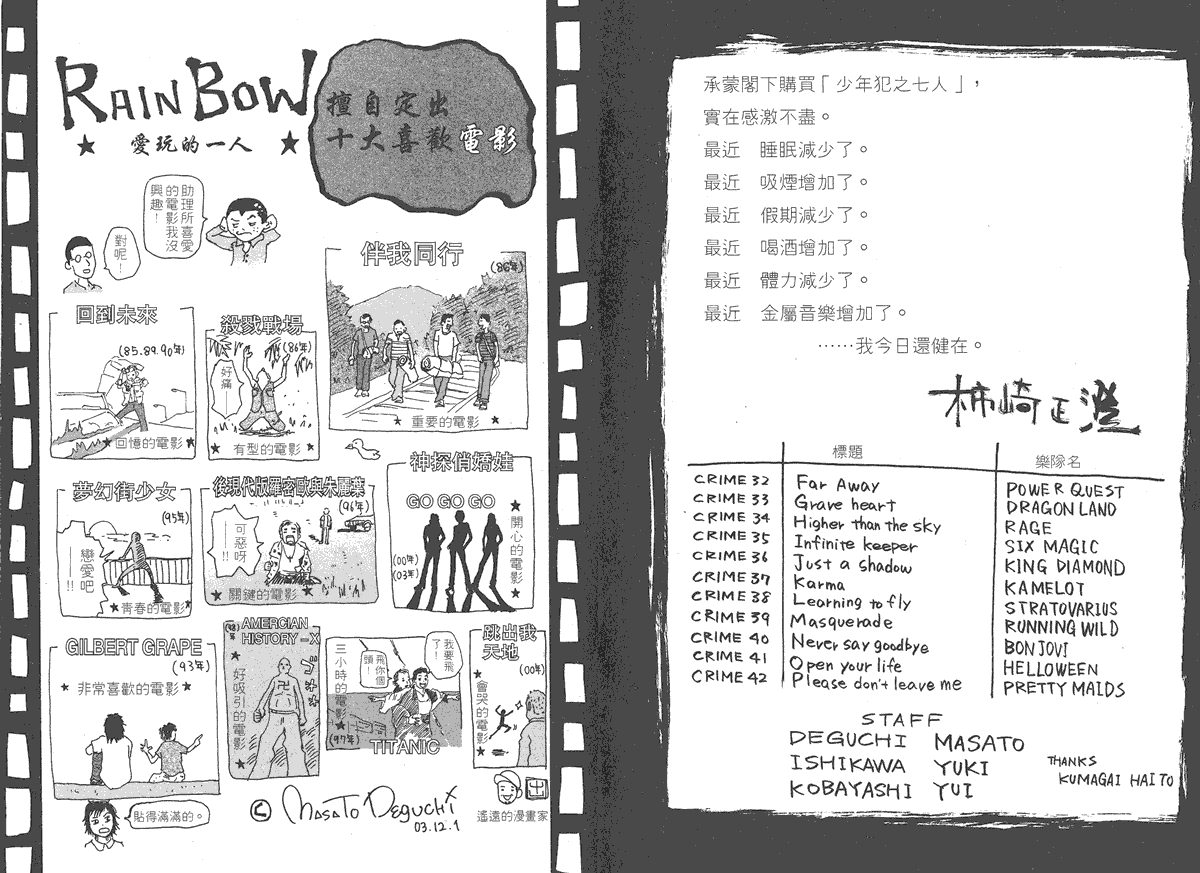 RAINBOW
★ 愛玩的一人 ★
擅自定出
十大喜歡電影
助理所喜愛
的電影我沒
興趣！
對呢！
伴我同行
(86年)
★ 重要的電影 ★
回到未來
(85.89.90年)
★回憶的電影★
殺戮戰場
(86年)
好痛——
★ 有型的電影 ★
夢幻街少女
(95年)
戀愛吧——!!
★青春的電影★
後現代版羅密歐與朱麗葉
(96年)
可惡呀——!!
★ 關鍵的電影 ★
神探俏嬌娃
GO GO GO
★開心的電影★
(00年)
(03年)
GILBERT GRAPE
(93年)
★ 非常喜歡的電影★
AMERCIAN
HISTORY-X
(98年)
★好吸引的電影★
三小時的電影★
(97年)
飛你個
頭！
我要飛
了！
TITANIC
跳出我
天地
(00年)
★會哭的電影★
貼得滿滿的。
© MASATO DEGUCHI
03.12.1
出
遙遠的漫畫家
承蒙閣下購買「少年犯之七人」，
實在感激不盡。
最近　睡眠減少了。
最近　吸煙增加了。
最近　假期減少了。
最近　喝酒增加了。
最近　體力減少了。
最近　金屬音樂增加了。
……我今日還健在。
柿崎正澄
標題　樂隊名
CRIME 32 Far Away POWER QUEST
CRIME 33 Grave heart DRAGON LAND
CRIME 34 Higher than the sky RAGE
CRIME 35 Infinite keeper SIX MAGIC
CRIME 36 Just a shadow KING DIAMOND
CRIME 37 Karma KAMELOT
CRIME 38 Learning to fly STRATOVARIUS
CRIME 39 Masquerade RUNNING WILD
CRIME 40 Never say goodbye BON JOVI
CRIME 41 Open your life HELLOWEEN
CRIME 42 Please don't leave me PRETTY MAIDS
STAFF
DEGUCHI MASATO
ISHIKAWA YUKI
KOBAYASHI YUI
THANKS
KUMAGAI HAITO